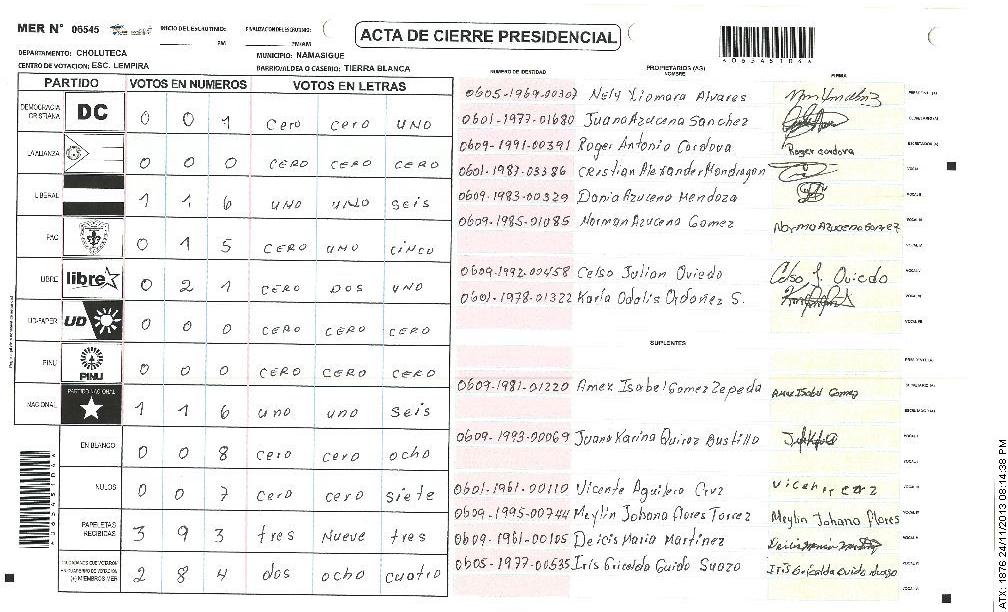 MER N° 06545 INICIO DEL ESCRUTINIO: FINALIZACION ESCRUTINIO:
PM PM/AM
ACTA DE CIERRE PRESIDENCIAL
DEPARTAMENTO: CHOLUTECA MUNICIPIO: NAMASIGUE
CENTRO DE VOTACION: ESC. LEMPIRA BARRIO/ALDEA O CASERIO: TIERRA BLANCA
PARTIDO VOTOS EN NUMEROS VOTOS EN LETRAS
DEMOCRACIA CRISTIANA DC 0 0 1 cero cero UNO
LA ALIANZA 0 0 0 CERO CERO CERO
LIBERAL 1 1 6 UNO UNO SEIS
PAC 0 1 5 CERO UNO CINCO
LIBRE libre 0 2 1 CERO DOS UNO
UD-FAPER UD 0 0 0 CERO CERO CERO
PINU PINU 0 0 0 CERO CERO CERO
NACIONAL PARTIDO NACIONAL 1 1 6 uno uno seis
EN BLANCO 0 0 8 cero cero ocho
NULOS 0 0 7 cero cero siete
PAPELETAS RECIBIDAS 3 9 3 tres Nueve tres
2 8 4 dos ocho cuatro
NUMERO DE IDENTIDAD PROPIETARIOS (AS) NOMBRE FIRMA
0605-1969-00307 Nely Xiomara Alvares
0601-1977-01680 Juana Azucena Sanchez
0609-1991-00391 Roger Antonio Cordova Roger cordova
0601-1987-03386 Cristian Alexander Mondragon
0609-1983-00329 Dania Azucena Mendoza
0609-1985-01085 Norman Azucena Gomez Norma Azucena Gomez
0609-1992-00458 Celso Julian Oviedo Celso J. Oviedo
0601-1978-01322 Karla Odalis Ordoñez S.
SUPLENTES
0609-1981-01220 Amex Isabel Gomez Zepeda Amex Isabel Gomez
0609-1993-00069 Juana Karina Quiroz Bustillo
0601-1961-00110 Vicente Aguilera Cruz
0609-1995-00744 Meylin Johana Flores Torrez Meylin Johana Flores
0609-1961-00105 Deicis Maria Martinez
0605-1977-00535 Iris Gricelda Guido Suazo
ATX: 1876 24/11/2013 08:14:38 PM